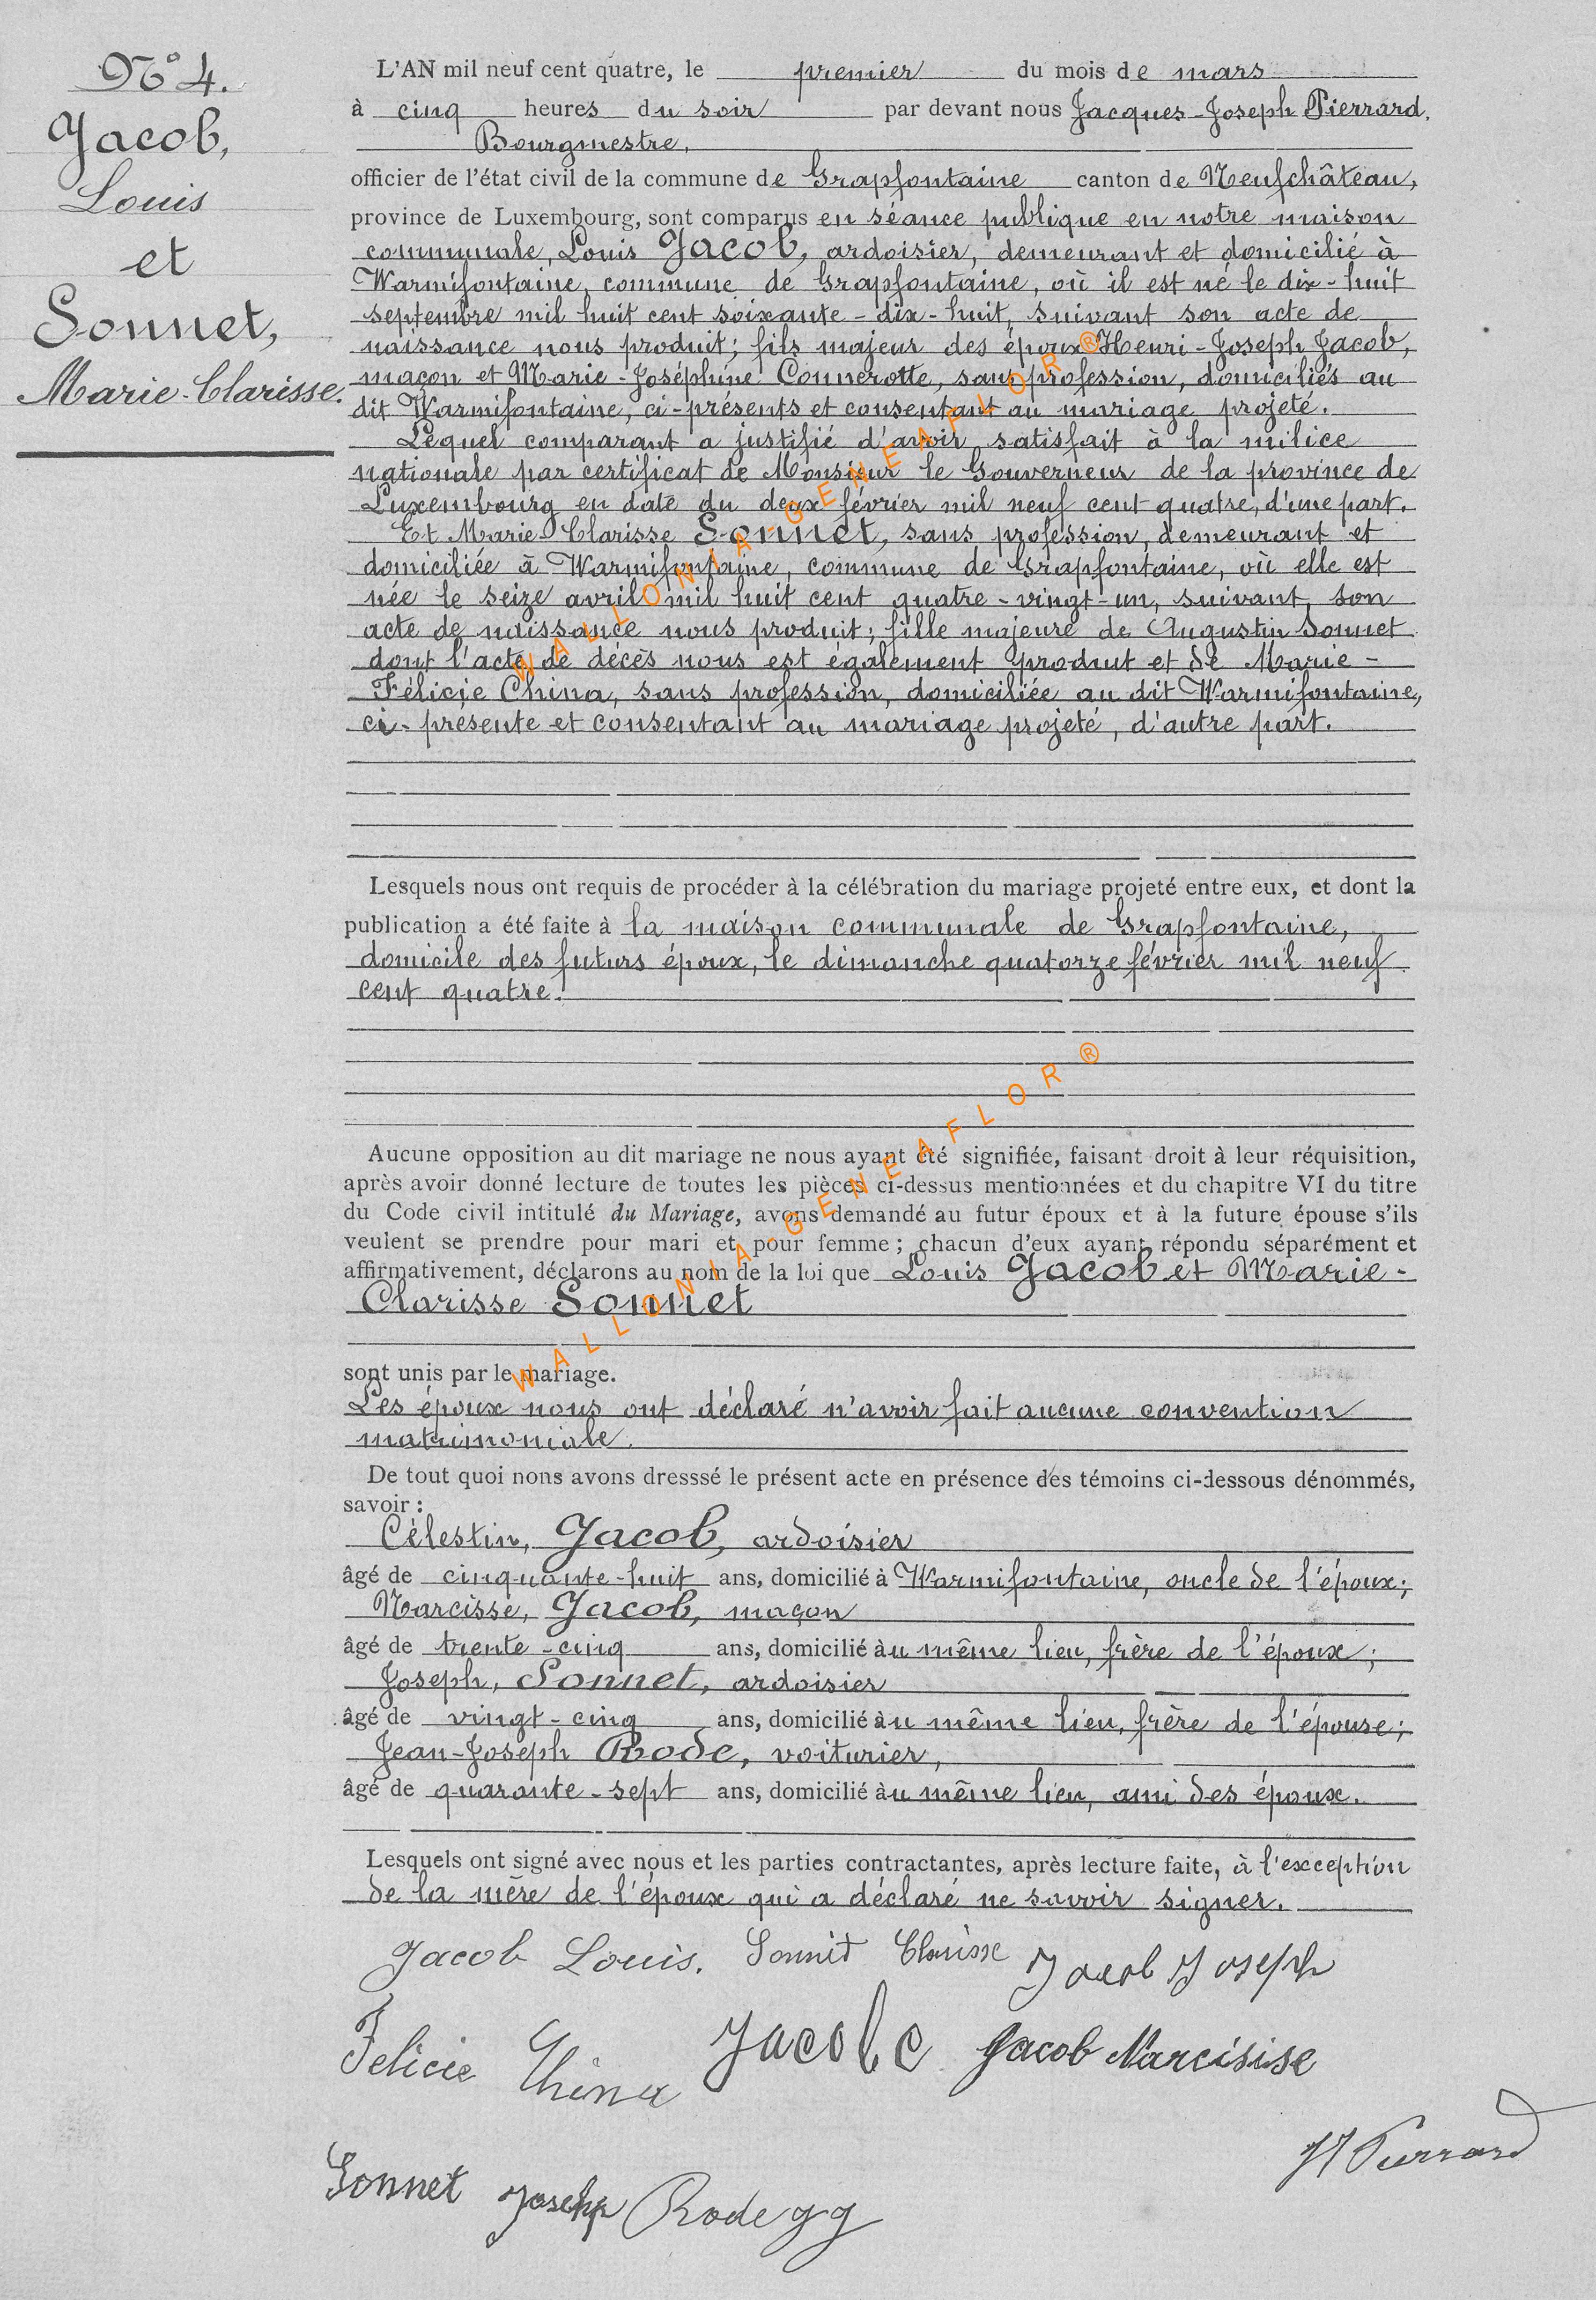 N° 4.
Jacob,
Louis
et
Sonnet,
Marie-Clarisse.
L'AN mil neuf cent quatre, le premier du mois de mars
à cinq heures du soir par devant nous Jacques-Joseph Pierrard,
Bourgmestre,
officier de l'état civil de la commune de Grapfontaine canton de Neufchâteau,
province de Luxembourg, sont comparus en séance publique en notre maison
communale, Louis Jacob, ardoisier, demeurant et domicilié à
Warmifontaine, commune de Grapfontaine, où il est né le dix-huit
septembre mil huit cent soixante-dix-huit, suivant son acte de
naissance nous produit; fils majeur des époux Henri-Joseph Jacob,
maçon et Marie-Joséphine Connerotte, sans profession, domiciliés au
dit Warmifontaine, ci-présents et consentant au mariage projeté.
Lequel comparant a justifié d'avoir satisfait à la milice
nationale par certificat de Monsieur le Gouverneur de la province de
Luxembourg en date du deux février mil neuf cent quatre, d'une part.
Et Marie-Clarisse Sonnet, sans profession, demeurant et
domiciliée à Warmifontaine, commune de Grapfontaine, où elle est
née le seize avril mil huit cent quatre-vingt-un, suivant son
acte de naissance nous produit; fille majeure de Augustin Sonnet
dont l'acte de décès nous est également produit et de Marie-
Félicie China, sans profession, domiciliée au dit Warmifontaine,
ci-présente et consentant au mariage projeté, d'autre part.
Lesquels nous ont requis de procéder à la célébration du mariage projeté entre eux, et dont la
publication a été faite à la maison communale de Grapfontaine,
domicile des futurs époux, le dimanche quatorze février mil neuf
cent quatre.
Aucune opposition au dit mariage ne nous ayant été signifiée, faisant droit à leur réquisition,
après avoir donné lecture de toutes les pièces ci-dessus mentionnées et du chapitre VI du titre
du Code civil intitulé du Mariage, avons demandé au futur époux et à la future épouse s'ils
veulent se prendre pour mari et pour femme; chacun d'eux ayant répondu séparément et
affirmativement, déclarons au nom de la loi que Louis Jacob et Marie-
Clarisse Sonnet
sont unis par le mariage.
Les époux nous ont déclaré n'avoir fait aucune convention
matrimoniale.
De tout quoi nons avons dresssé le présent acte en présence des témoins ci-dessous dénommés,
savoir :
Célestin, Jacob, ardoisier
âgé de cinquante-huit ans, domicilié à Warmifontaine, oncle de l'époux;
Narcisse, Jacob, maçon
âgé de trente-cinq ans, domicilié au même lieu, frère de l'époux;
Joseph, Sonnet, ardoisier
âgé de vingt-cinq ans, domicilié au même lieu, frère de l'épouse;
Jean-Joseph Rode, voiturier,
âgé de quarante-sept ans, domicilié au même lieu, ami des époux.
Lesquels ont signé avec nous et les parties contractantes, après lecture faite, à l'exception
de la mère de l'époux qui a déclaré ne savoir signer.
Jacob Louis. Sonnet Clarisse Jacob Joseph
Felicie China Jacob C Jacob Narcisise
JJ Pierrard
Sonnet Joseph Rode JJ
WALLONIA-GENEAFLOR®
WALLONIA-GENEAFLOR®